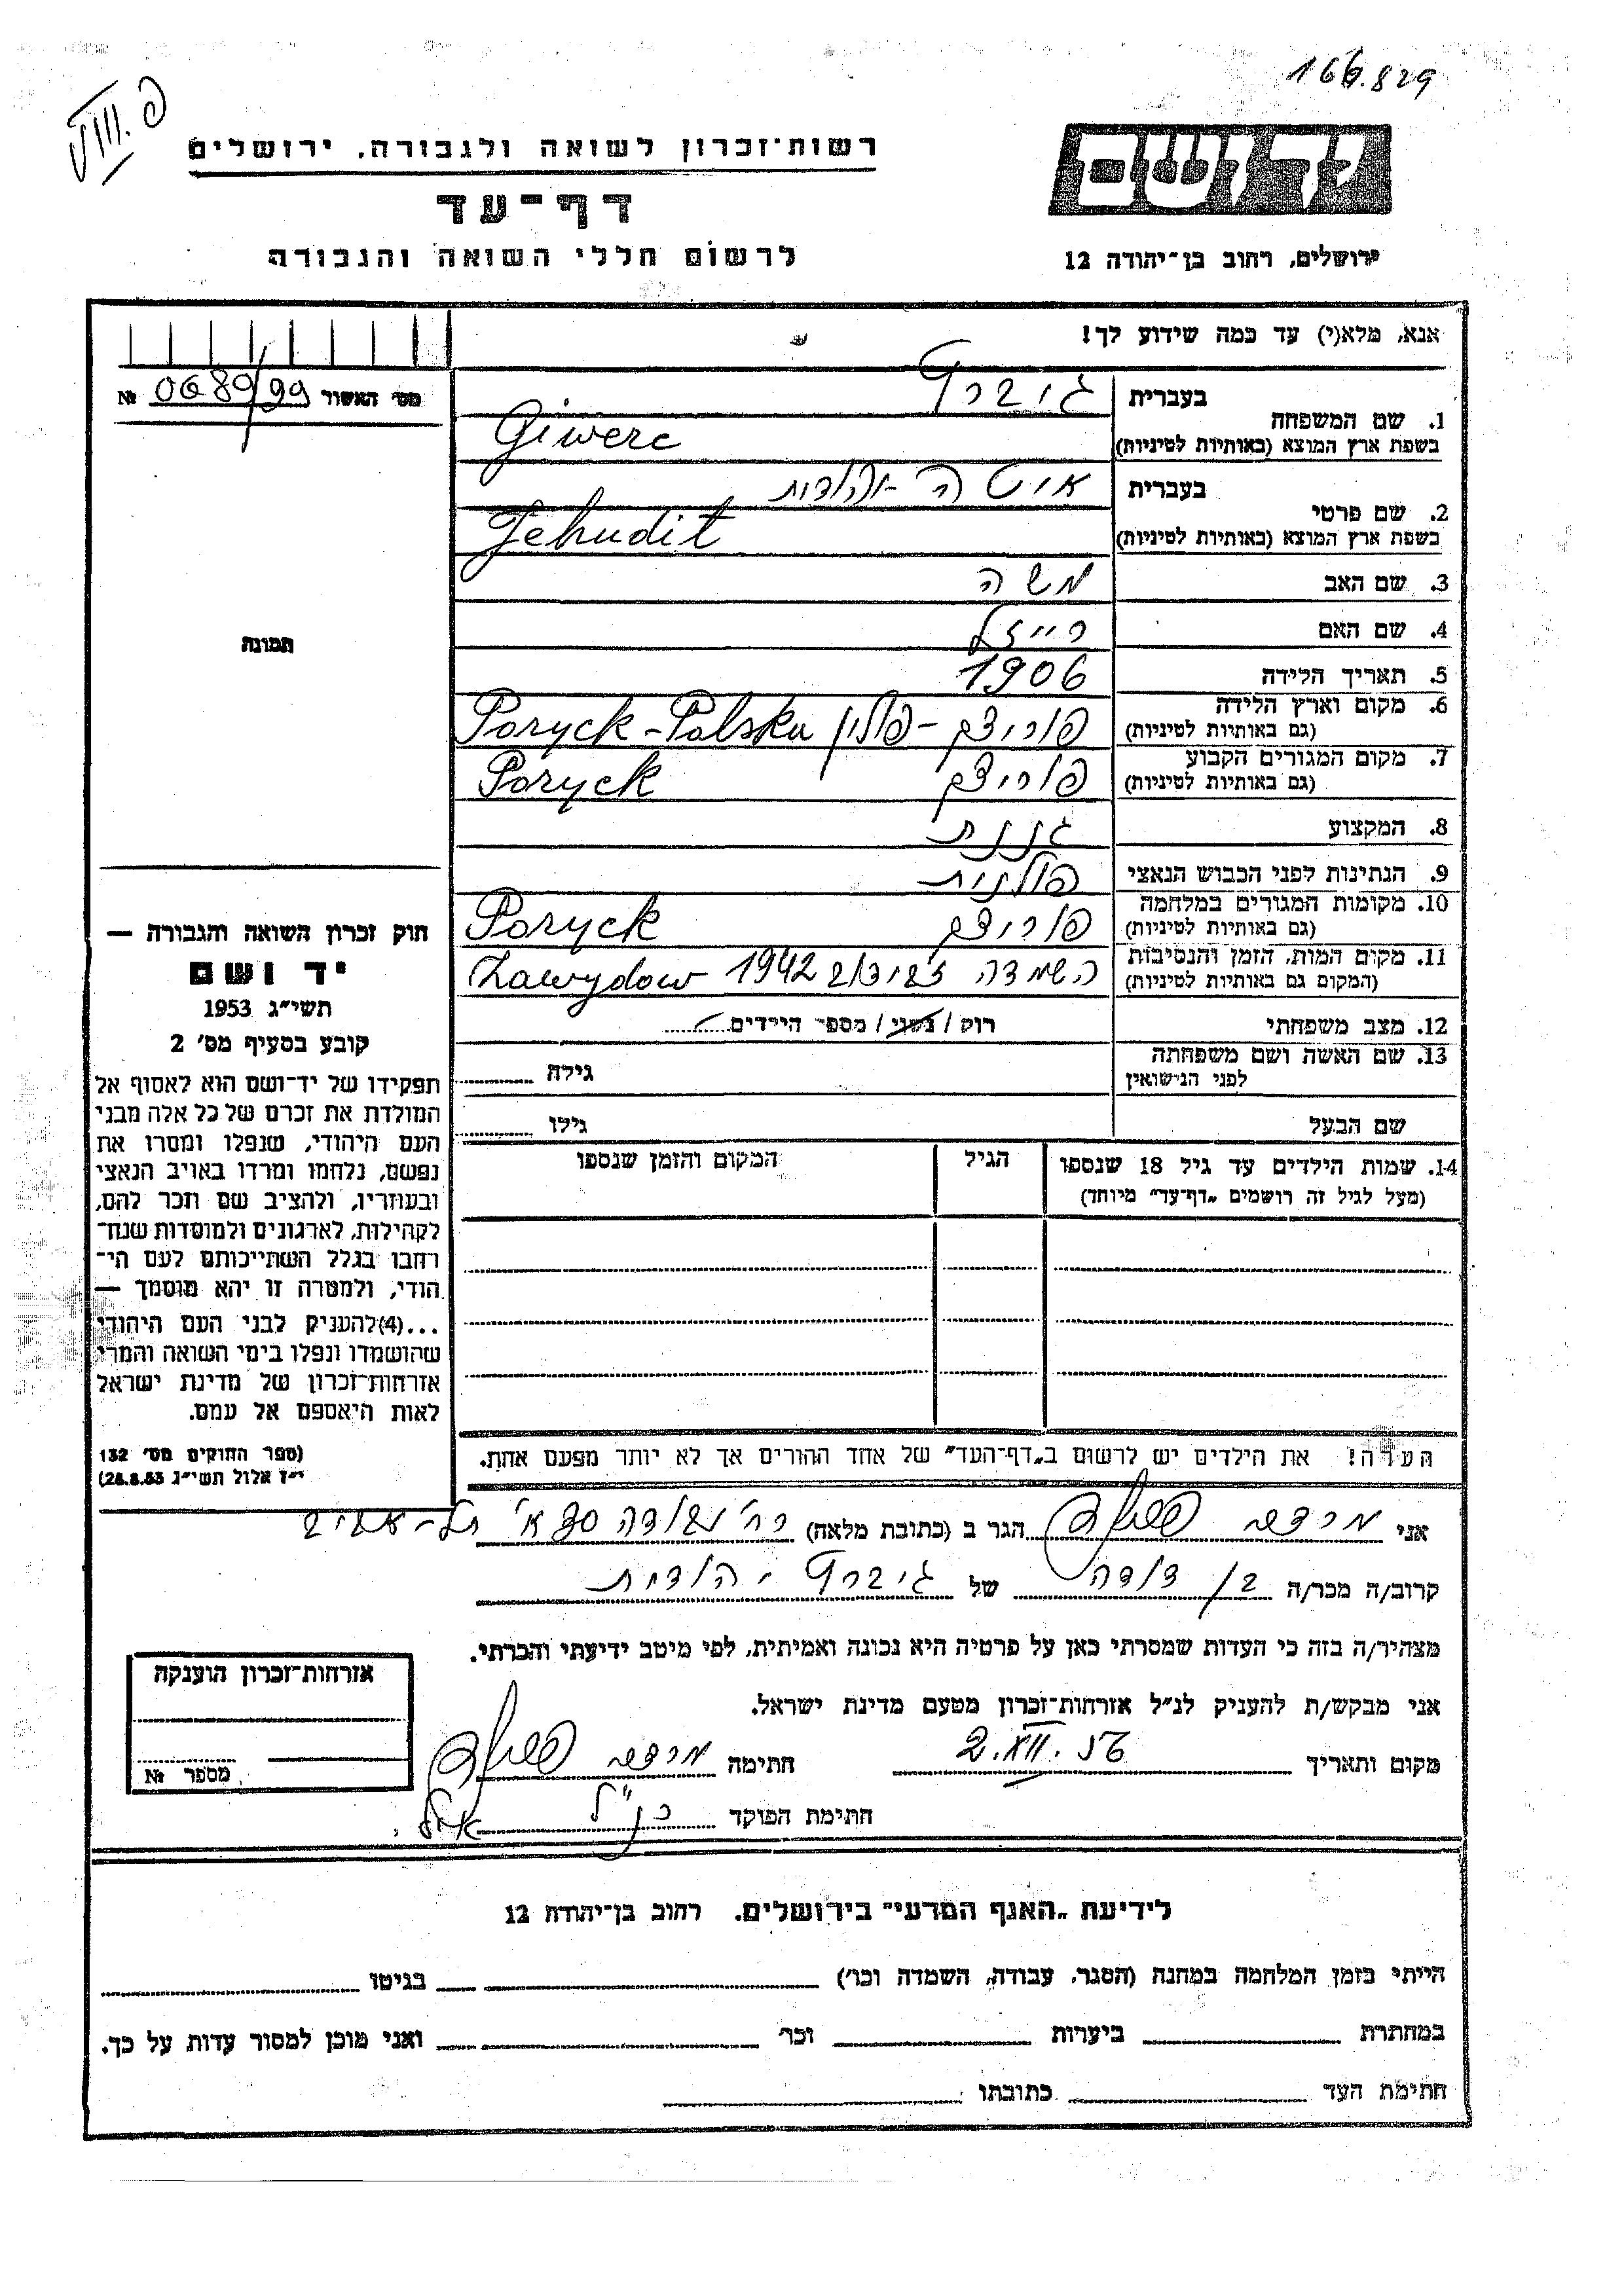 166.829
רשות־זכרון לשואה ולגבורה, ירושלים
דף־עד
לרשום חללי השואה והגבורה
יד ושם
ירושלים, רחוב בן־יהודה 12
אנא, מלא(י) עד כמה שידוע לך!
מס׳ האשור № 0689/99
1. שם המשפחה
בעברית גיברץ
בשפת ארץ המוצא (באותיות לטיניות) Giwerc
2. שם פרטי
בעברית איטה יהודית
בשפת ארץ המוצא (באותיות לטיניות) Jehudit
3. שם האב משה
4. שם האם רייזל
5. תאריך הלידה 1906
6. מקום וארץ הלידה (גם באותיות לטיניות) פוריצק - פולין Poryck - Polska
7. מקום המגורים הקבוע (גם באותיות לטיניות) פוריצק Poryck
8. המקצוע גננת
9. הנתינות לפני הכבוש הנאצי פולנית
10. מקומות המגורים במלחמה (גם באותיות לטיניות) פוריצק Poryck
11. מקום המות, הזמן והנסיבות (המקום גם באותיות לטיניות) השמדה 1942 Zawydow
12. מצב משפחתי רוק / נשוי / מספר הילדים
13. שם האשה ושם משפחתה לפני הנישואין גילה
שם הבעל גילו
14. שמות הילדים עד גיל 18 שנספו
(מעל לגיל זה רושמים „דף־עד״ מיוחד)
הגיל
המקום והזמן שנספו
הערה! את הילדים יש לרשום ב„דף־העד״ של אחד ההורים אך לא יותר מפעם אחת.
תמונה
חוק זכרון השואה והגבורה —
יד ושם
תשי״ג 1953
קובע בסעיף מס׳ 2
תפקידו של יד־ושם הוא לאסוף אל
המולדת את זכרם של כל אלה מבני
העם היהודי, שנפלו ומסרו את
נפשם, נלחמו ומרדו באויב הנאצי
ובעוזריו, ולהציב שם וזכר להם,
לקהילות, לארגונים ולמוסדות שנח־
רחבו בגלל השתייכותם לעם הי־
הודי, ולמטרה זו יהא מוסמך —
...(4)להעניק לבני העם היהודי
שהושמדו ונפלו בימי השואה והמרי
אזרחות־זכרון של מדינת ישראל
לאות היאספם אל עמם.
(ספר החוקים מס׳ 132
י״ז אלול תשי״ג 28.8.53)
אני הגר ב (כתובת מלאה) תל-אביב
קרוב/ה מכר/ה בן דודה של גיברץ יהודית
מצהיר/ה בזה כי העדות שמסרתי כאן על פרטיה היא נכונה ואמיתית, לפי מיטב ידיעתי והכרתי.
אני מבקש/ת להעניק לנ״ל אזרחות־זכרון מטעם מדינת ישראל.
מקום ותאריך חתימה
חתימת הפוקד
אזרחות־זכרון הוענקה
מספר №
לידיעת „האגף המדעי״ בירושלים. רחוב בן־יהודה 12
הייתי בזמן המלחמה במחנה (הסגר, עבודה, השמדה וכו׳) בגיטו
במחתרת ביערות וכו׳ ואני מוכן למסור עדות על כך.
חתימת העד כתובתו